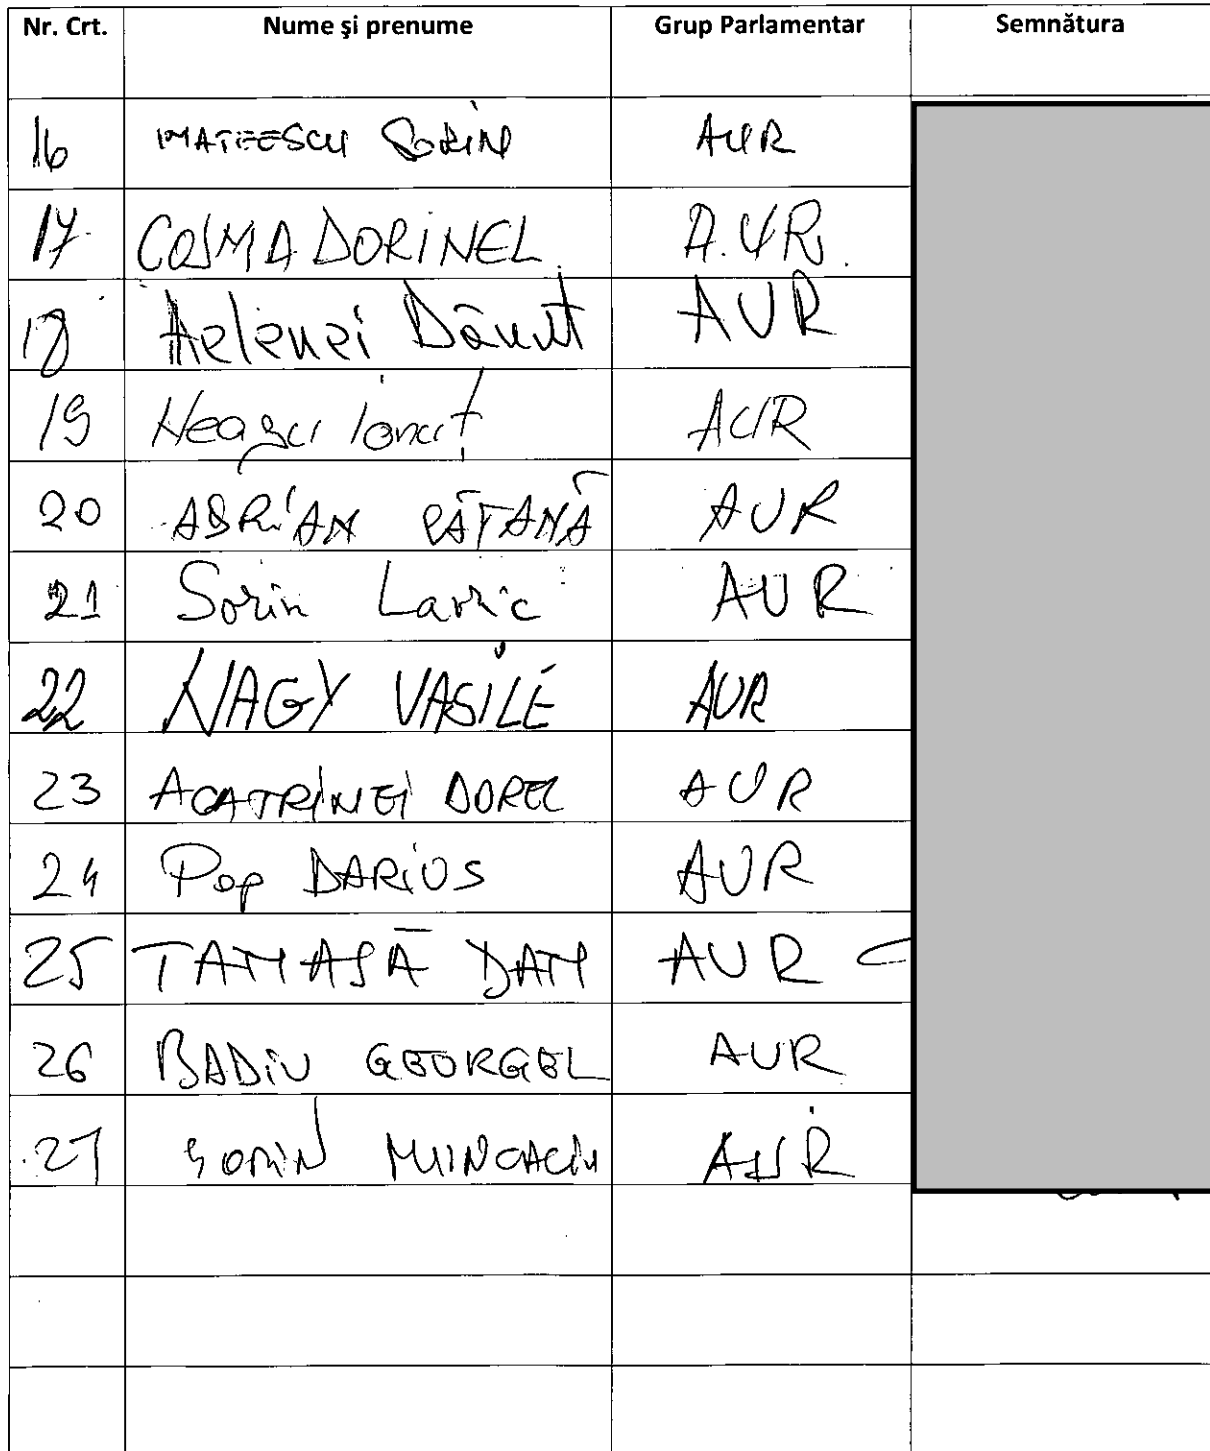 Nr. Crt. Nume și prenume Grup Parlamentar Semnătura
16 MATEESCU SORIN AUR
17. COSMA DORINEL. A.UR.
18 Aelenei Dănuț AUR
19 Neagu Ionuț AUR
20 ADRIAN PĂȚANĂ AUR
21 Sorin Lavric AUR
22 NAGY VASILE AUR
23 ACATRINEI DOREL AUR
24 Pop DARIUS AUR
25 TANASĂ DAN AUR
26 BADIU GEORGEL AUR
27 SORIN AUR